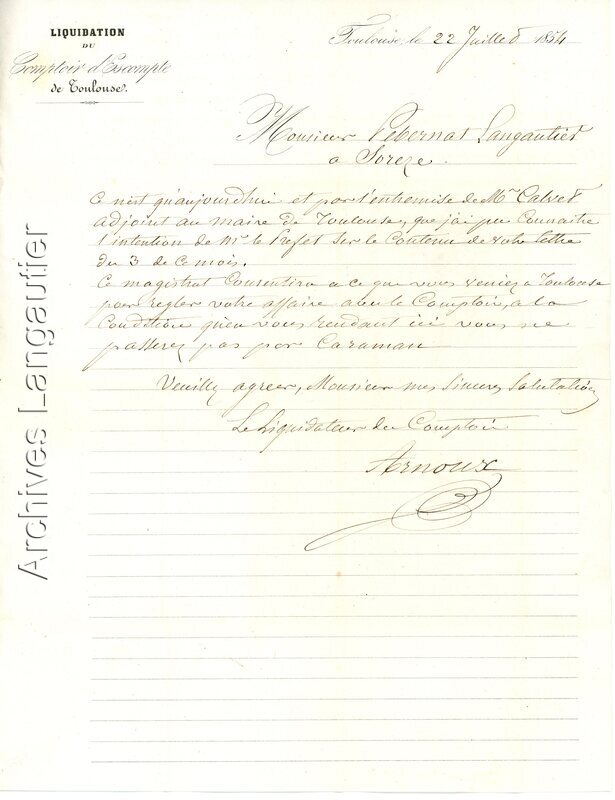 LIQUIDATION
DU
Comptoir d'Escompte
de Toulouse.
Toulouse, le 22 Juillet 1854
Monsieur Pebernat Langautier
a Soreze.
Ce n'est qu'aujourdhui et par l'entremise de Mr Calvet
adjoint au maire de Toulouse, que j'ai pu connaitre
l'intention de Mr le Prefet sur le contenu de votre lettre
du 3 de ce mois.
Ce magistrat consentira a ce que vous veniez a Toulouse
pour regler votre affaire avec le Comptoir, a la
Condition qu'en vous rendant ici vous ne
passerez pas par Caraman
Veuillez agreer, Monsieur mes sinceres salutations
Le Liquidateur du Comptoir
Arnoux
Archives Langautier